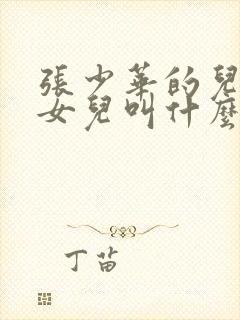 張少華的兒
女兒叫什麼
丁苗